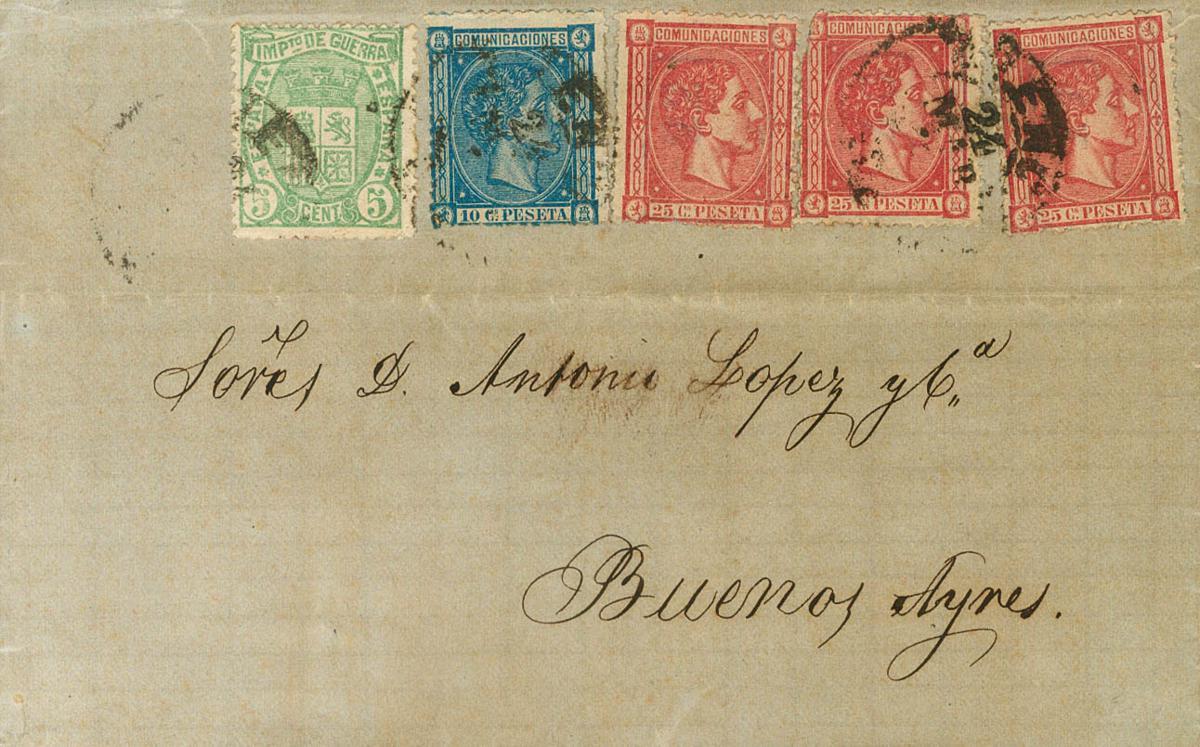 IMPTO DE GUERRA
ESPAÑA ESPAÑA
5 CENT. 5
COMUNICACIONES
10 Cs PESETA
COMUNICACIONES
25 Cs PESETA
COMUNICACIONES
25 Cs PESETA
COMUNICACIONES
25 Cs PESETA
24
Sores D. Antonio Lopez y Ca
Buenos Ayres.